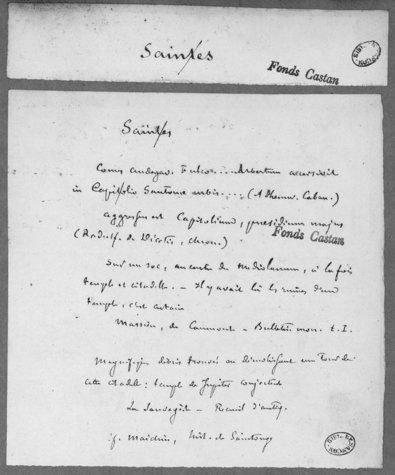 Saintes
Fonds Castan
Saintes
Comes andegav. Fulco... Arbertum accersivit
in Capitolio Santonae urbis.... (Adhemar. Caban.)
aggressus est Capitolium, praesidium majus
(Radulf. de Diceto, chron.)
Fonds Castan
Sur un roc, au centre de Mediolanum, à la fois
temple et citadelle. – Il y avait là les ruines d'un
temple, c'est certain
Massiou, de Caumont – Bulletin mon. t. I.
Magnifiques débris trouvés en démolissant une Tour de
cette citadelle: temple de Jupiter
La Sauvagère – Recueil d'antiq.
cf. Maichin, hist. de Saintonge